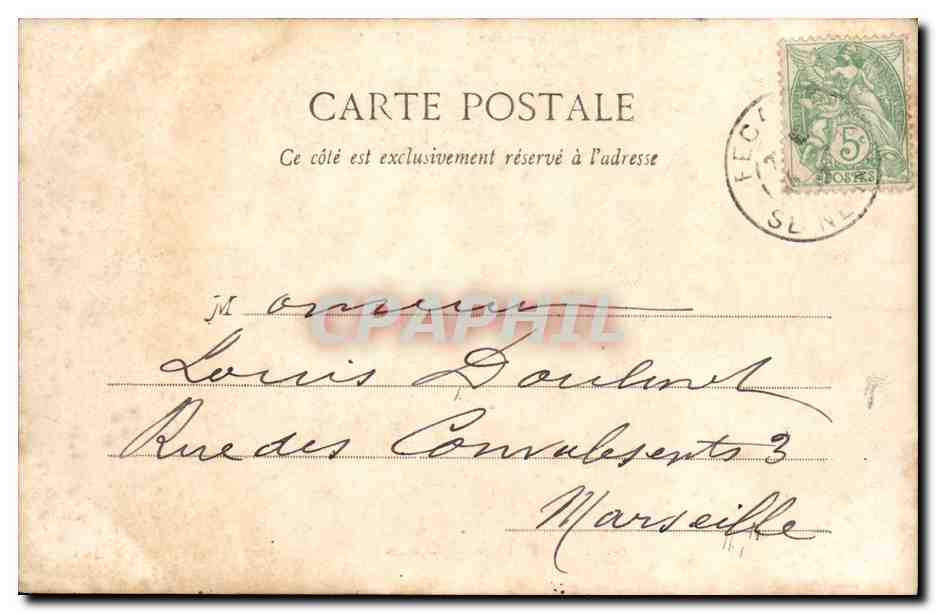 CARTE POSTALE
Ce côté est exclusivement réservé à l'adresse
5c
POSTES
FEC
SEINE
Monsieur
CPAPHIL
Louis
Rue des Convalescents 3
Marseille